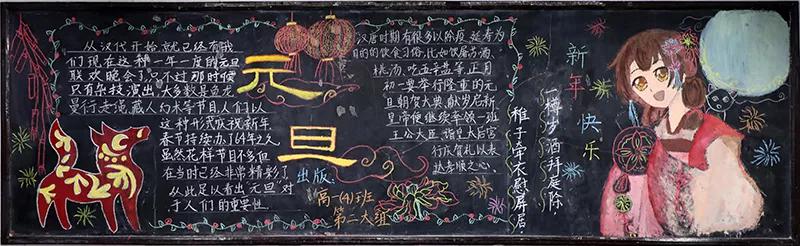 从汉代开始就已经有我
们现在这种一年一度的元旦
联欢晚会了。不过那时候
只有杂技演出，大多数是鱼龙
曼衍走绳藏人幻术等节目人们以
这种形式庆祝新年
春节持续办了64年之久
虽然花样节目不多但
在当时已经非常精彩了
从此足以看出"元旦"对
于人们的重要性
元
旦
出版
高一(4)班
第二大组
汉唐时期有很多以除疫、延寿为
目的的饮食习俗,比如饮屠苏酒、
桃汤、吃五辛盘等,正月
初一要举行隆重的元
旦朝贺大典,献岁后新
皇帝便继续率领一班
王公大臣、
行庆贺礼以表
达孝顺之心。
一樽岁酒拜庭除
稚子牵衣慰屏居
新年快乐